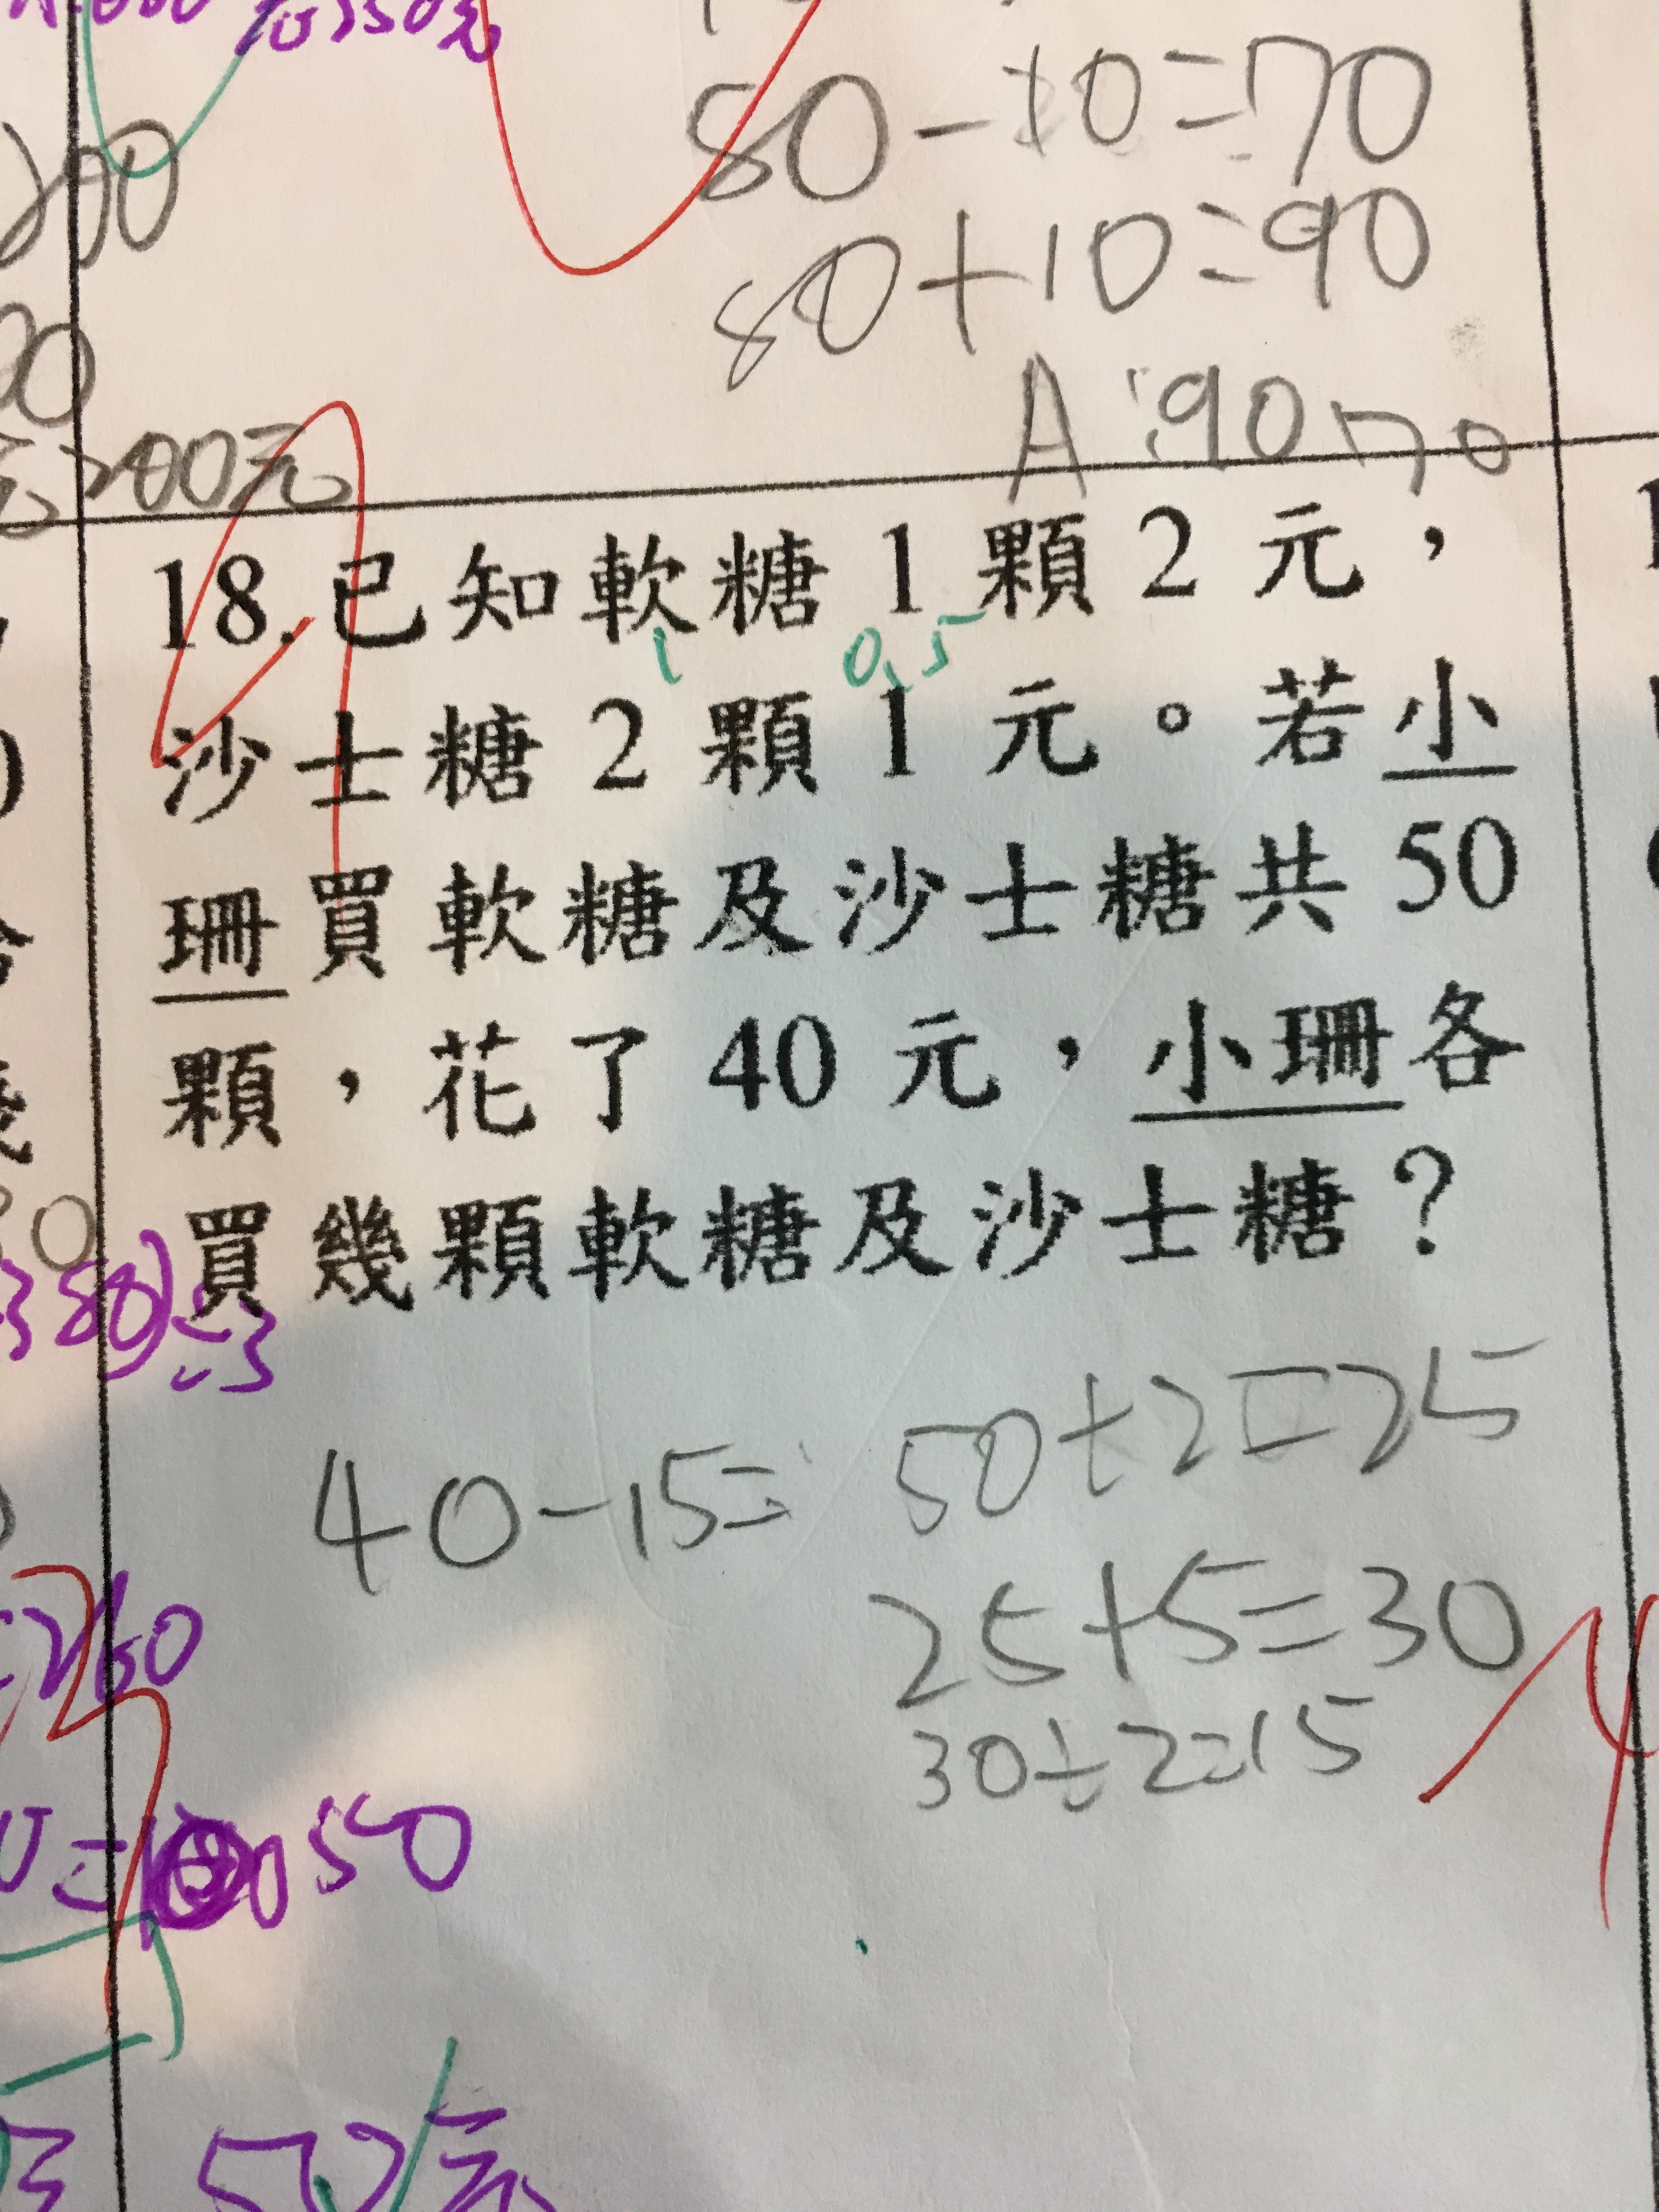 350元
80-10=70
200
80+10=90
A:90 70
200元
18.已知軟糖1顆2元，
1 0.5
沙士糖2顆1元。若小
珊買軟糖及沙士糖共50
顆，花了40元，小珊各
買幾顆軟糖及沙士糖？
50÷2=25
40-15=
25+5=30
=260
30÷2=15
50
50元